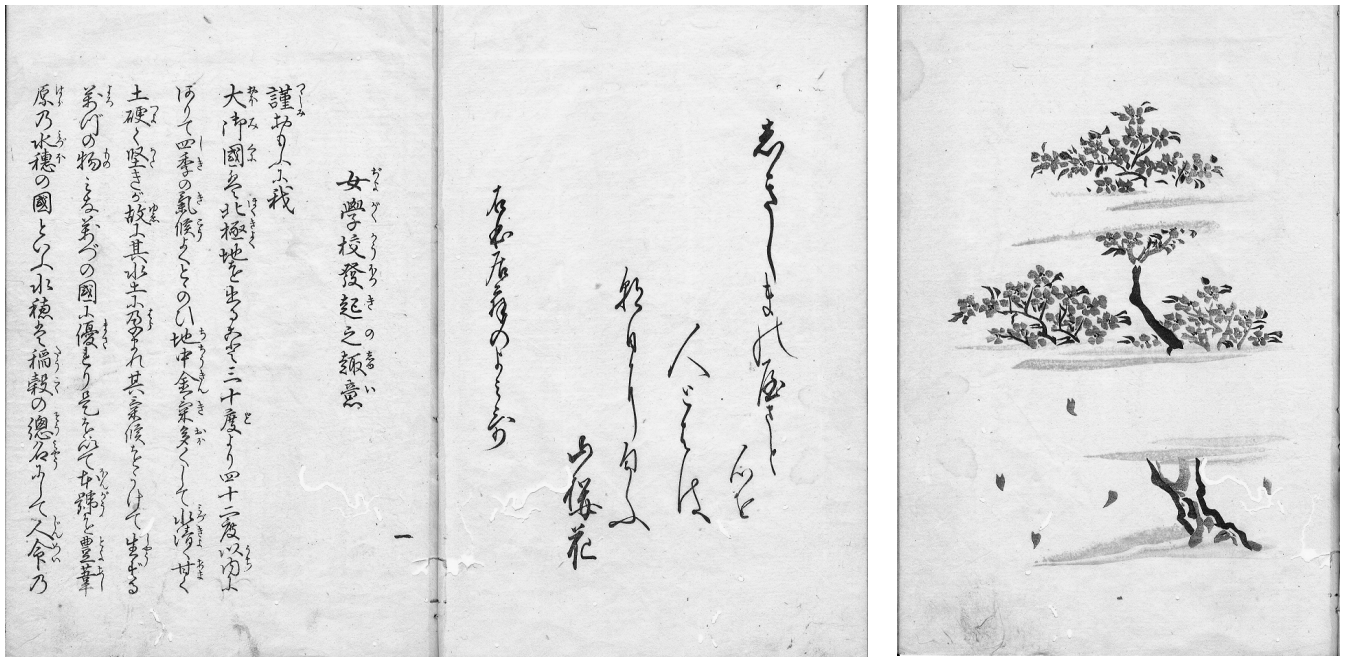 志きしまの屋まと
心を
人とはは
朝日に匂ふ
山櫻花
右本居翁のよみ哥
女學校發起之趣意
謹おもふに我
大御國は北極地を出る事三十度より四十二度以内に
ありて四季の氣候よくとゝのひ地中金氣多くして水清く甘く
土硬く堅きが故に其水土に孕まれ其氣候をうけて生ずる
萬づの物みな萬づの國に優たり是を以て本號を豊葦
原乃水穗の國といふ水穗は稲穀の總名にして人命乃
一